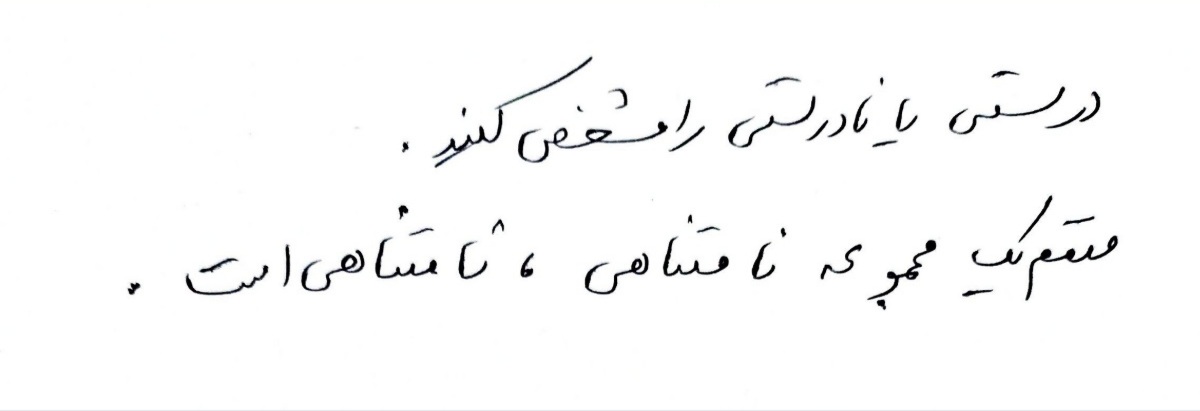 درستی یا نادرستی را مشخص کنید.
متمم یک مجموعه نامتناهی، نامتناهی است.